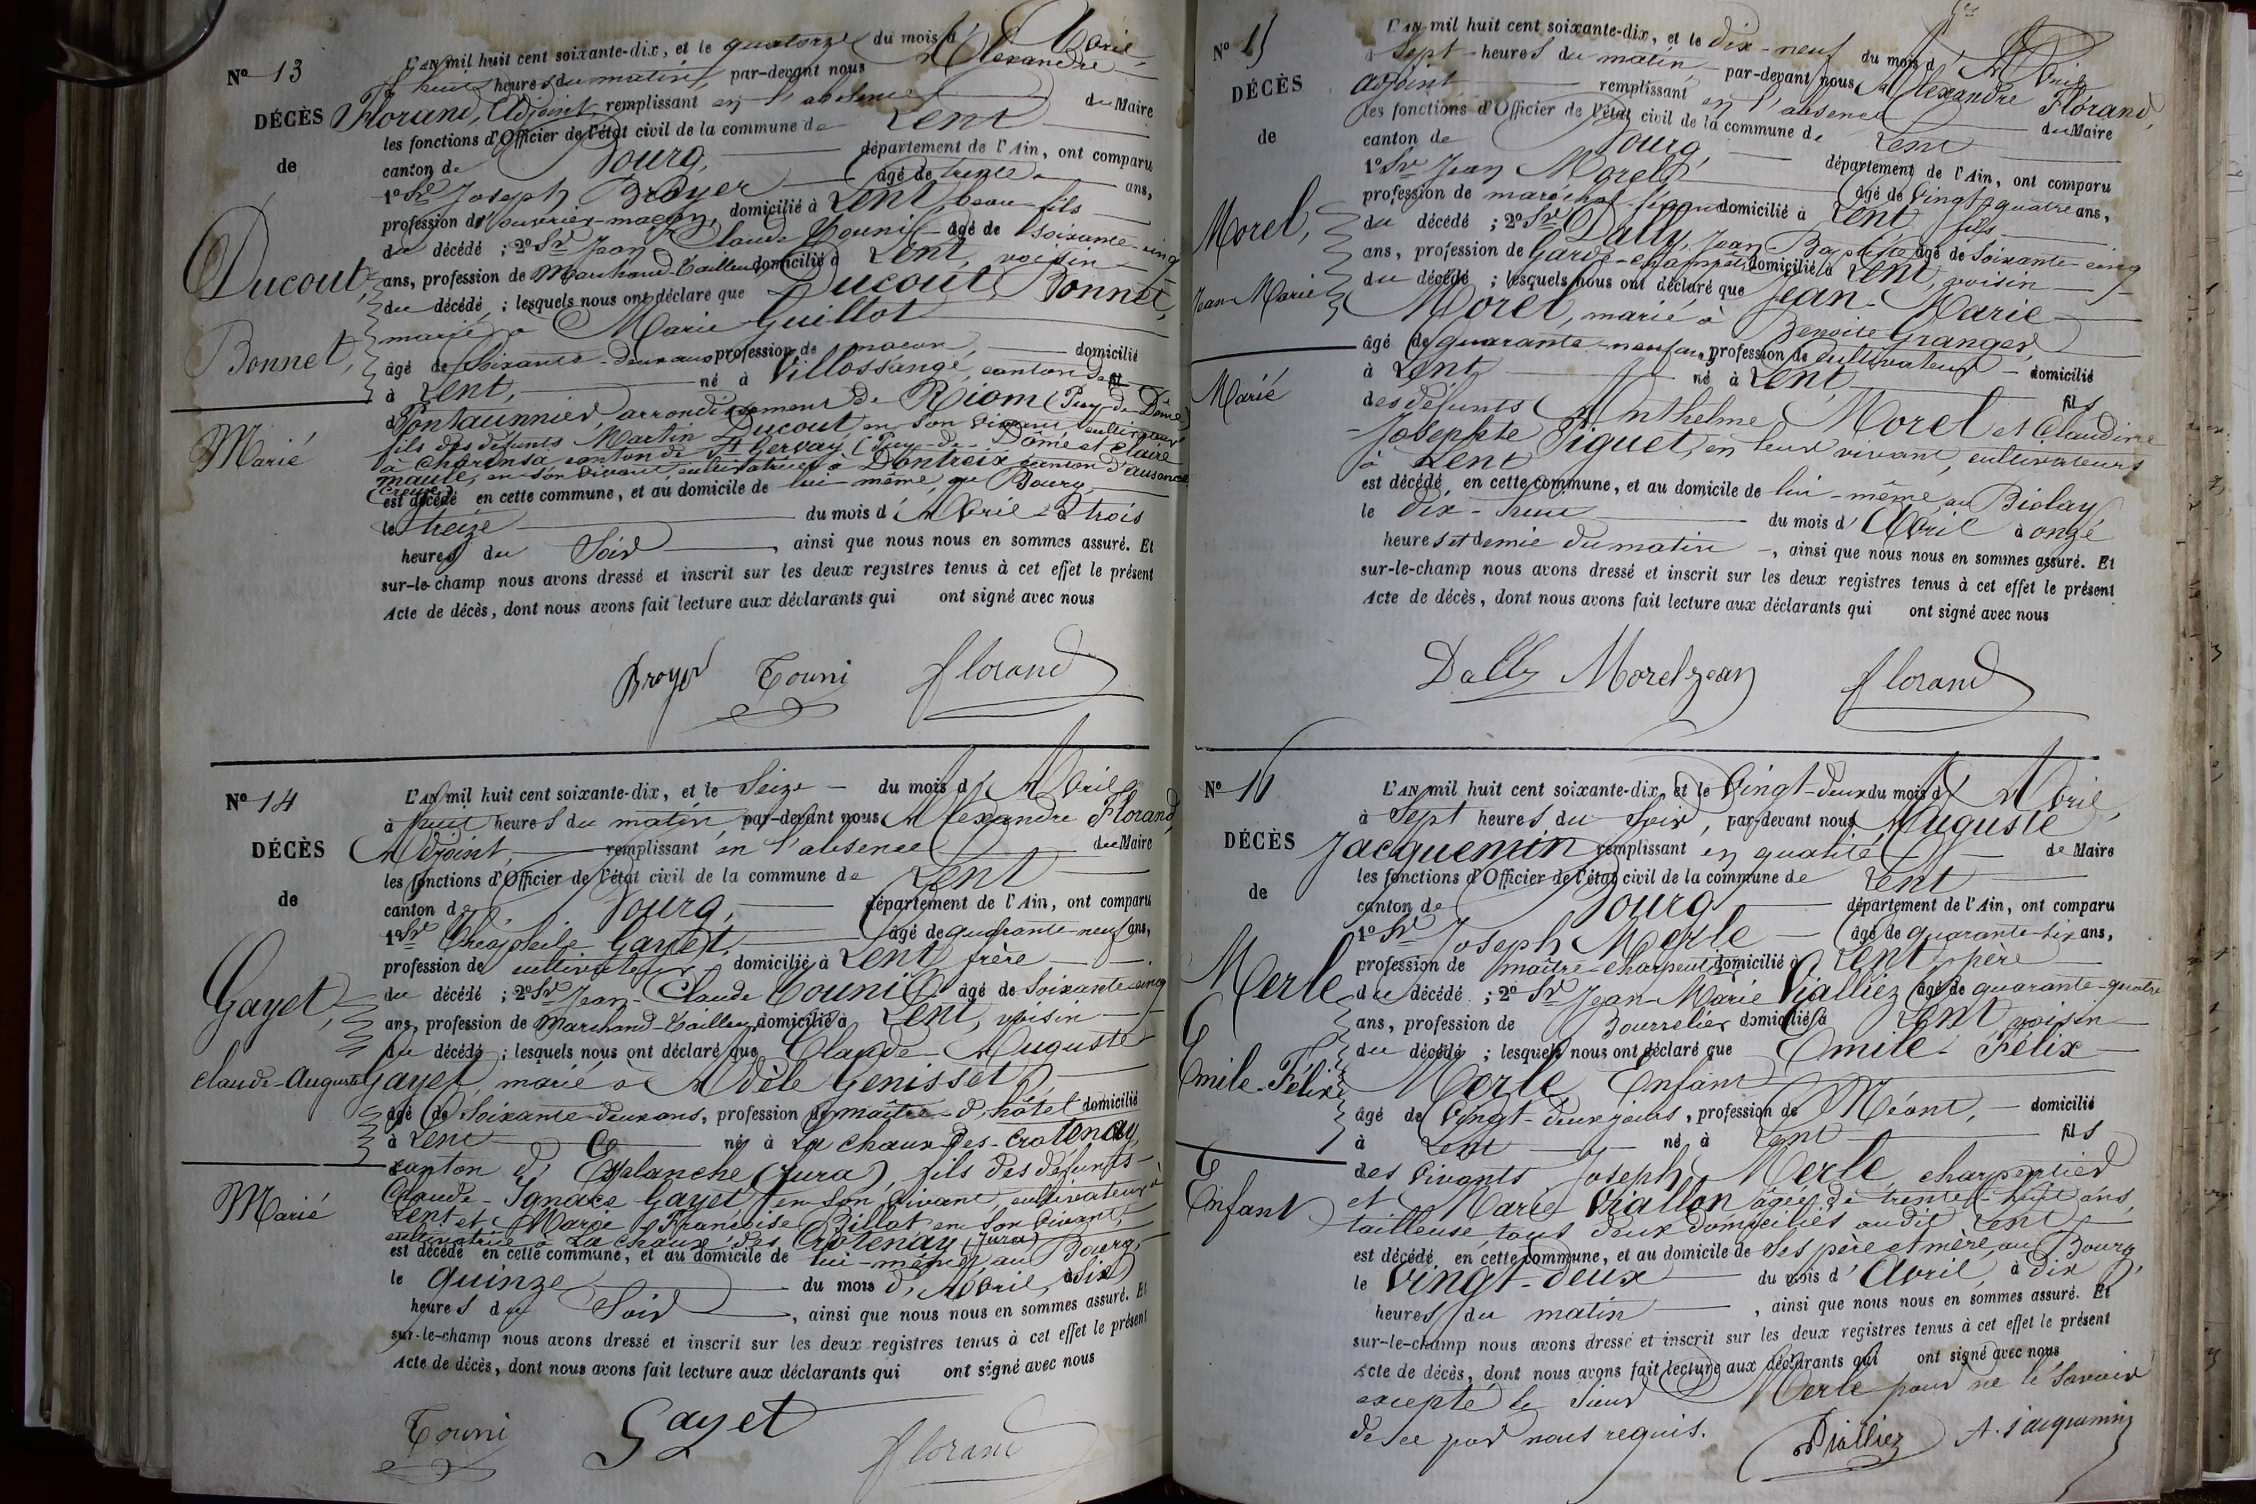 Nº 13
DÉCÈS
de
Ducout,
Bonnet,
Marié
L'AN mil huit cent soixante-dix, et le quatorze du mois d'Avril
à huit heures du matin, par-devant nous Alexandre
Florand, Adjoint, remplissant en l'absence du Maire
les fonctions d'Officier de l'état civil de la commune de Lent
canton de Bourg, département de l'Ain, ont comparu
1º Sr Joseph Broyer âgé de trente ans,
profession de ouvrier-maçon, domicilié à Lent, beau-fils
du décédé ; 2º Sr Jean-Claude Touni âgé de soixante-cinq
ans, profession de Marchand-tailleur domicilié à Lent, voisin
du décédé ; lesquels nous ont déclaré que Ducout Bonnet,
marié à Marie Guillot
âgé de soixante-deux ans profession de maçon, domicilié
à Lent, né à Villossange, canton de
Pontaumier, arrondissement de Riom (Puy-de-Dôme)
fils des défunts Martin Ducout en son vivant cultivateur
à Charensa canton de St Gervay (Puy-de-Dôme et Claire
maule, en son vivant cultivatrice à Dontreix canton d'ausance
(Creuse)
est décédé en cette commune, et au domicile de lui-même, au Bourg,
le treize du mois d'Avril à trois
heures du Soir, ainsi que nous nous en sommes assuré. Et
sur-le-champ nous avons dressé et inscrit sur les deux registres tenus à cet effet le présent
Acte de décès, dont nous avons fait lecture aux déclarants qui ont signé avec nous
Broyer Touni florand
Nº 14
DÉCÈS
de
Gayet,
Claude-Auguste
Marié
L'AN mil huit cent soixante-dix, et le Seize du mois d'Avril
à huit heures du matin, par-devant nous Alexandre Florand,
Adjoint, remplissant en l'absence du Maire
les fonctions d'Officier de l'état civil de la commune de Lent
canton de Bourg, département de l'Ain, ont comparu
1º Sr Théophile Gayet, âgé de quarante-neuf ans,
profession de cultivateur domicilié à Lent frère
du décédé ; 2º Sr Jean-Claude Touni âgé de soixante-cinq
ans, profession de Marchand-tailleur domicilié à Lent, voisin
du décédé ; lesquels nous ont déclaré que Claude-Auguste
Gayet, marié à Adèle Genisset,
âgé de soixante-deux ans, profession de maître-d'hôtel domicilié
à Lent né à La chaux-des-Crotenay,
canton d' Esplanche (Jura), fils des défunts
Claude-Ignace Gayet en son vivant, cultivateur à
Lent et Marie Françoise Billot en son vivant,
cultivatrice à La chaux des Crotenay (Jura)
est décédé en cette commune, et au domicile de lui-même, au Bourg,
le quinze du mois d'Avril, à Six
heures du Soir, ainsi que nous nous en sommes assuré. Et
sur-le-champ nous avons dressé et inscrit sur les deux registres tenus à cet effet le présent
Acte de décès, dont nous avons fait lecture aux déclarants qui ont signé avec nous
Touni Gayet florand
Nº 15
DÉCÈS
de
Morel,
Jean-Marie
Marié
L'AN mil huit cent soixante-dix, et le dix-neuf du mois d'Avril
à sept heures du matin, par-devant nous Alexandre Florand,
adjoint remplissant en l'absence du Maire
les fonctions d'Officier de l'état civil de la commune de Lent
canton de Bourg, département de l'Ain, ont comparu
1º Sr Jean Morel âgé de vingt-quatre ans,
profession de maréchal-ferrant domicilié à Lent fils
du décédé ; 2º Sr Dally, Jean-Baptiste âgé de soixante-cinq
ans, profession de Garde-champêtre domicilié à Lent, voisin
du décédé ; lesquels nous ont déclaré que Jean-Marie
Morel, marié à Benoite Granger,
âgé de quarante-neuf ans, profession de cultivateur domicilié
à Lent né à Lent fils
des défunts Anthelme Morel et Claudine
Josephte Piguet, en leur vivant, cultivateurs
à Lent
est décédé en cette commune, et au domicile de lui-même au Biolay
le dix-huit du mois d'Avril à onze
heures et demie du matin, ainsi que nous nous en sommes assuré. Et
sur-le-champ nous avons dressé et inscrit sur les deux registres tenus à cet effet le présent
Acte de décès, dont nous avons fait lecture aux déclarants qui ont signé avec nous
Dally Morel jean florand
Nº 16
DÉCÈS
de
Merle
Emile-Félix
Enfant
L'AN mil huit cent soixante-dix, et le vingt-deux du mois d'Avril,
à Sept heures du Soir, par-devant nous Auguste
Jacquemin remplissant en qualité de Maire
les fonctions d'Officier de l'état civil de la commune de Lent
canton de Bourg département de l'Ain, ont comparu
1º Sr Joseph Merle âgé de quarante-six ans,
profession de maître-charpentier domicilié à Lent père
du décédé ; 2º Sr Jean-Marie Vialliez âgé de quarante-quatre
ans, profession de Bourrelier domicilié à Lent voisin
du décédé ; lesquels nous ont déclaré que Emile-Félix
Merle Enfant
âgé de vingt-deux jours, profession de Néant, domicilié
à Lent né à Lent fils
des vivants Joseph Merle charpentier
et Marie Viallon âgée de trente-huit ans,
tailleuse, tous deux domiciliés audit Lent
est décédé en cette commune, et au domicile de ses père et mère, au Bourg,
le vingt-deux du mois d'Avril, à dix
heures du matin, ainsi que nous nous en sommes assuré. Et
sur-le-champ nous avons dressé et inscrit sur les deux registres tenus à cet effet le présent
Acte de décès, dont nous avons fait lecture aux déclarants qui ont signé avec nous
excepté le Sieur Merle pour ne le savoir
de ce par nous requis.
Vialliez A. Jacquemin